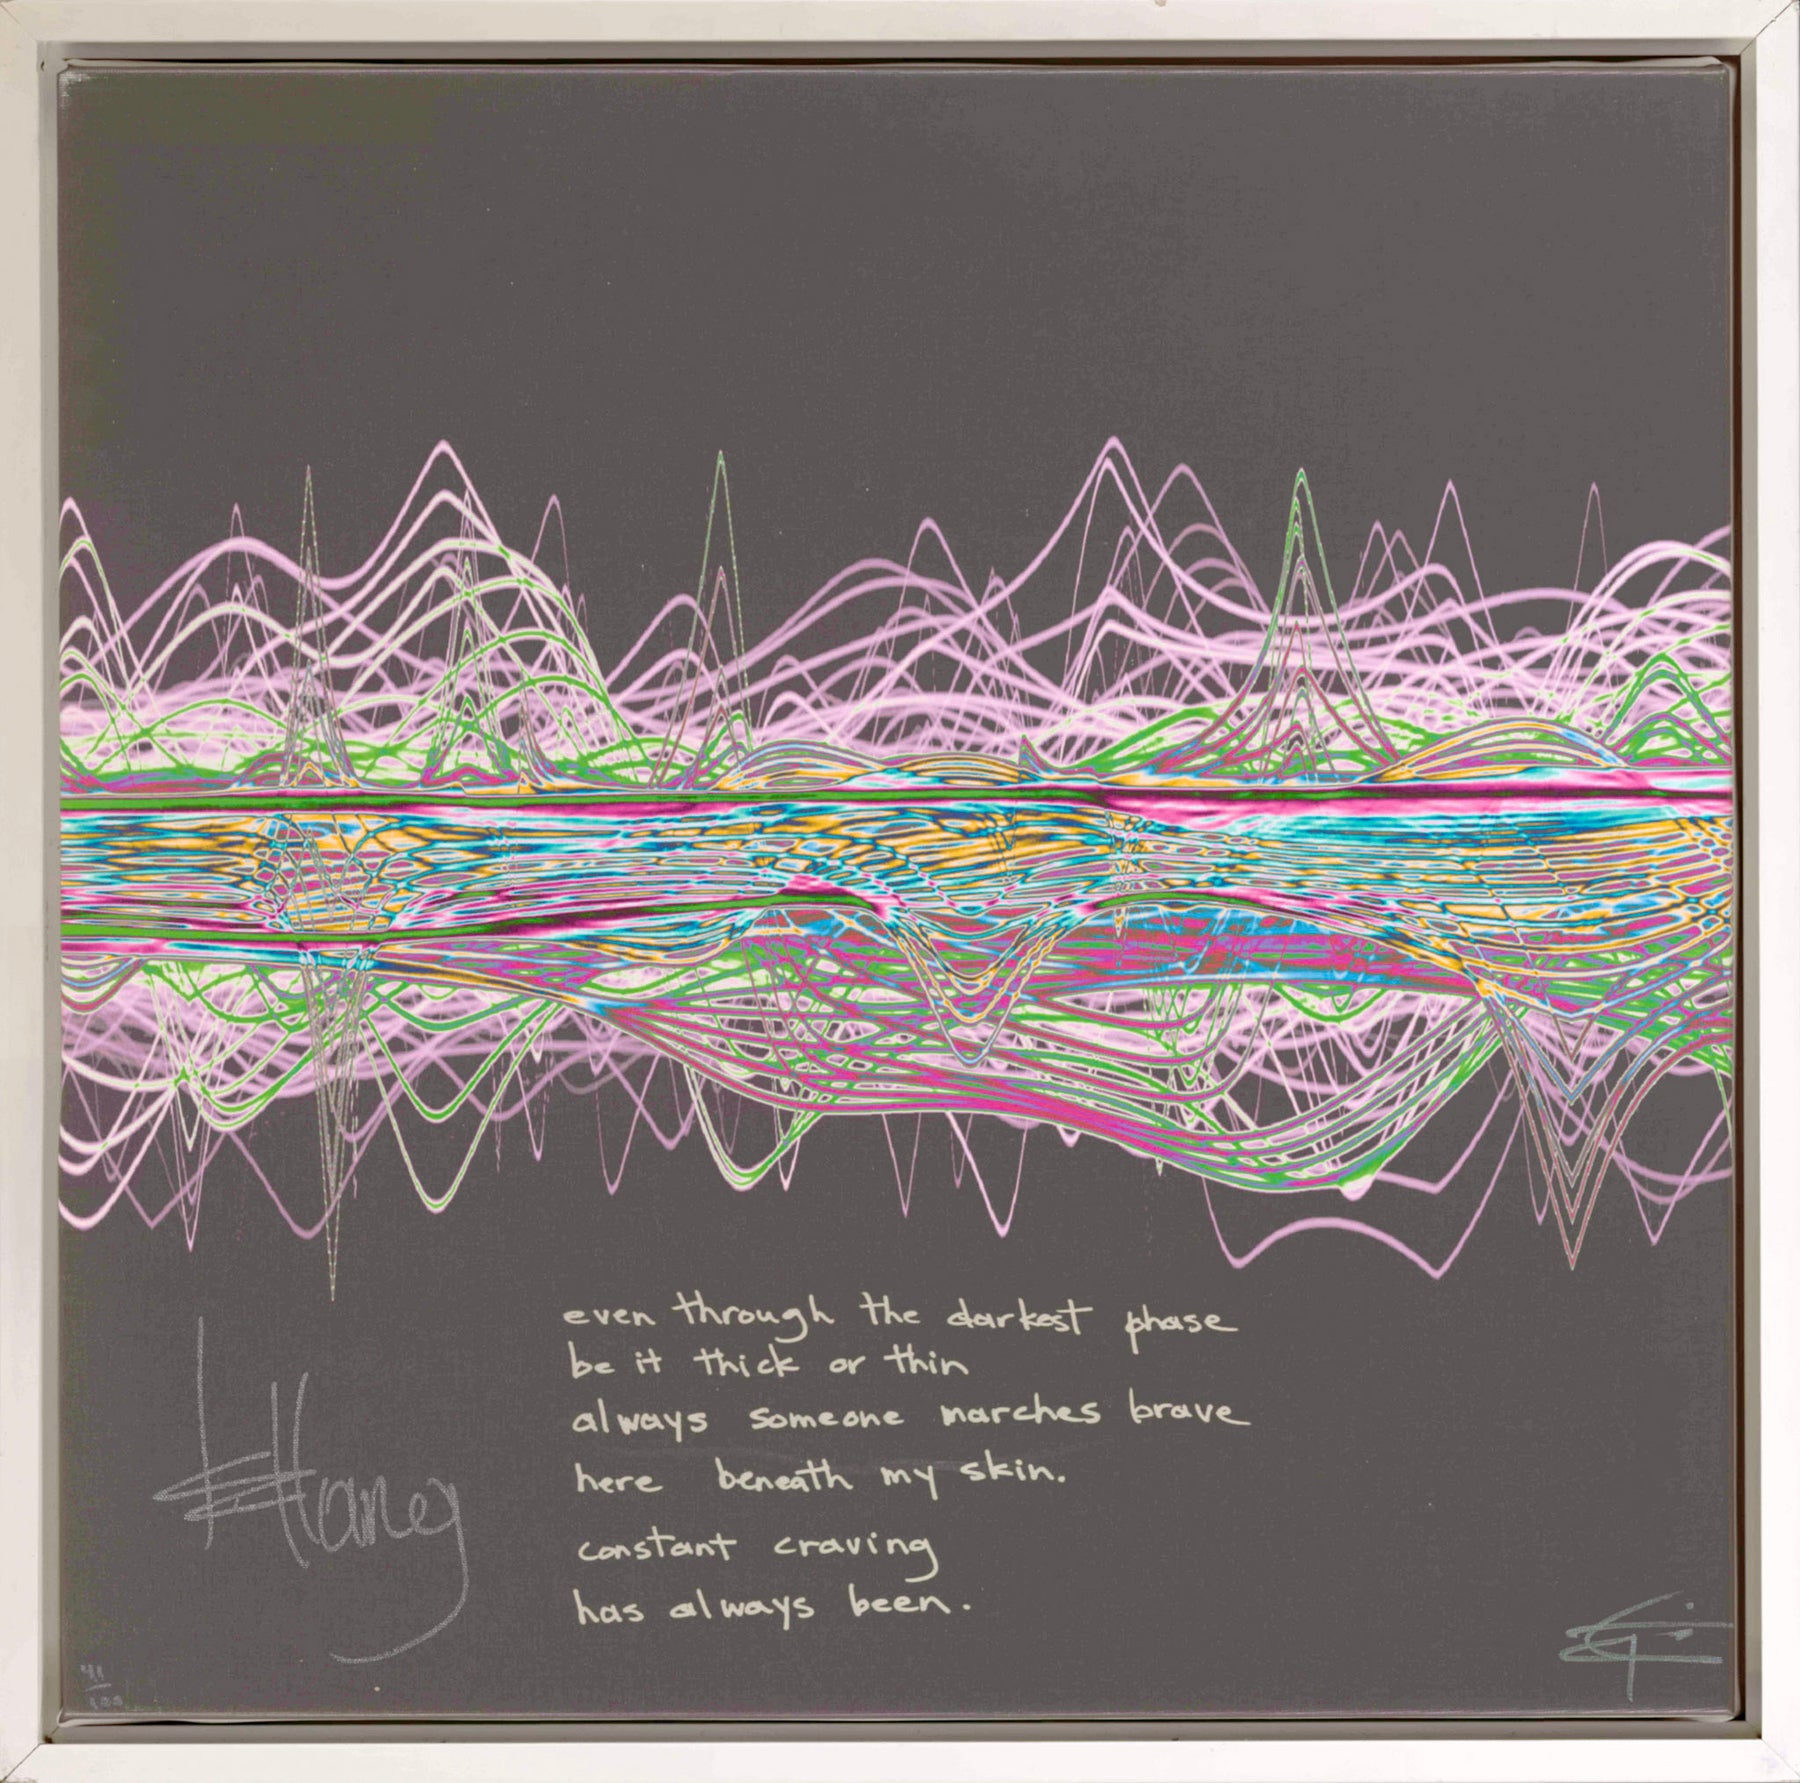 even through the darkest phase
be it thick or thin
always someone marches brave
here beneath my skin.
constant craving
has always been.
kdlang